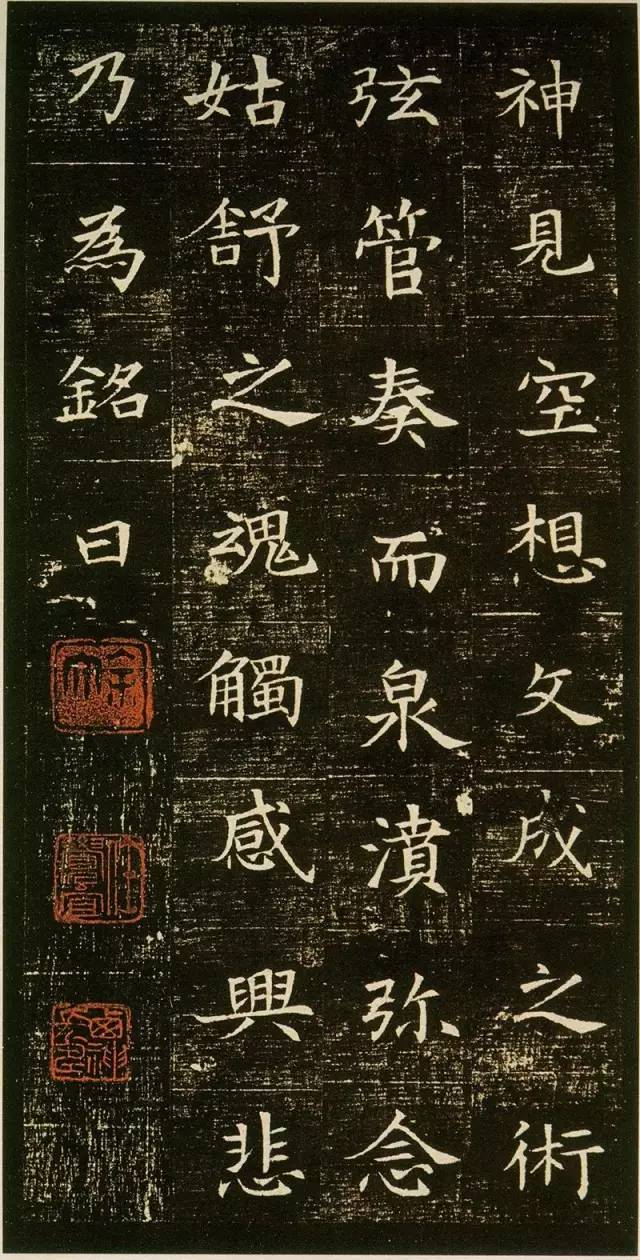 神見空想文成之術
弦管奏而泉濆弥念
姑舒之魂觸感興悲
乃為銘曰